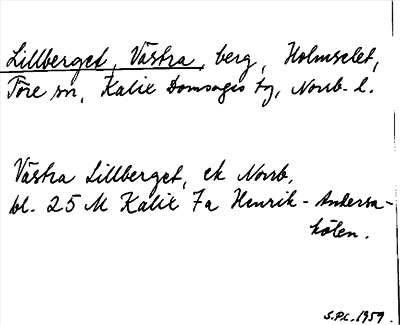 Lillberget, Västra, berg, Holmselet,
Töre sn, Kalix Domsagas tg, Norrb. l.
Västra Lillberget, ek Norrb,
bl. 25 M Kalix 7a Henrik-Andersa-
kölen.
S.P.L. 1959.